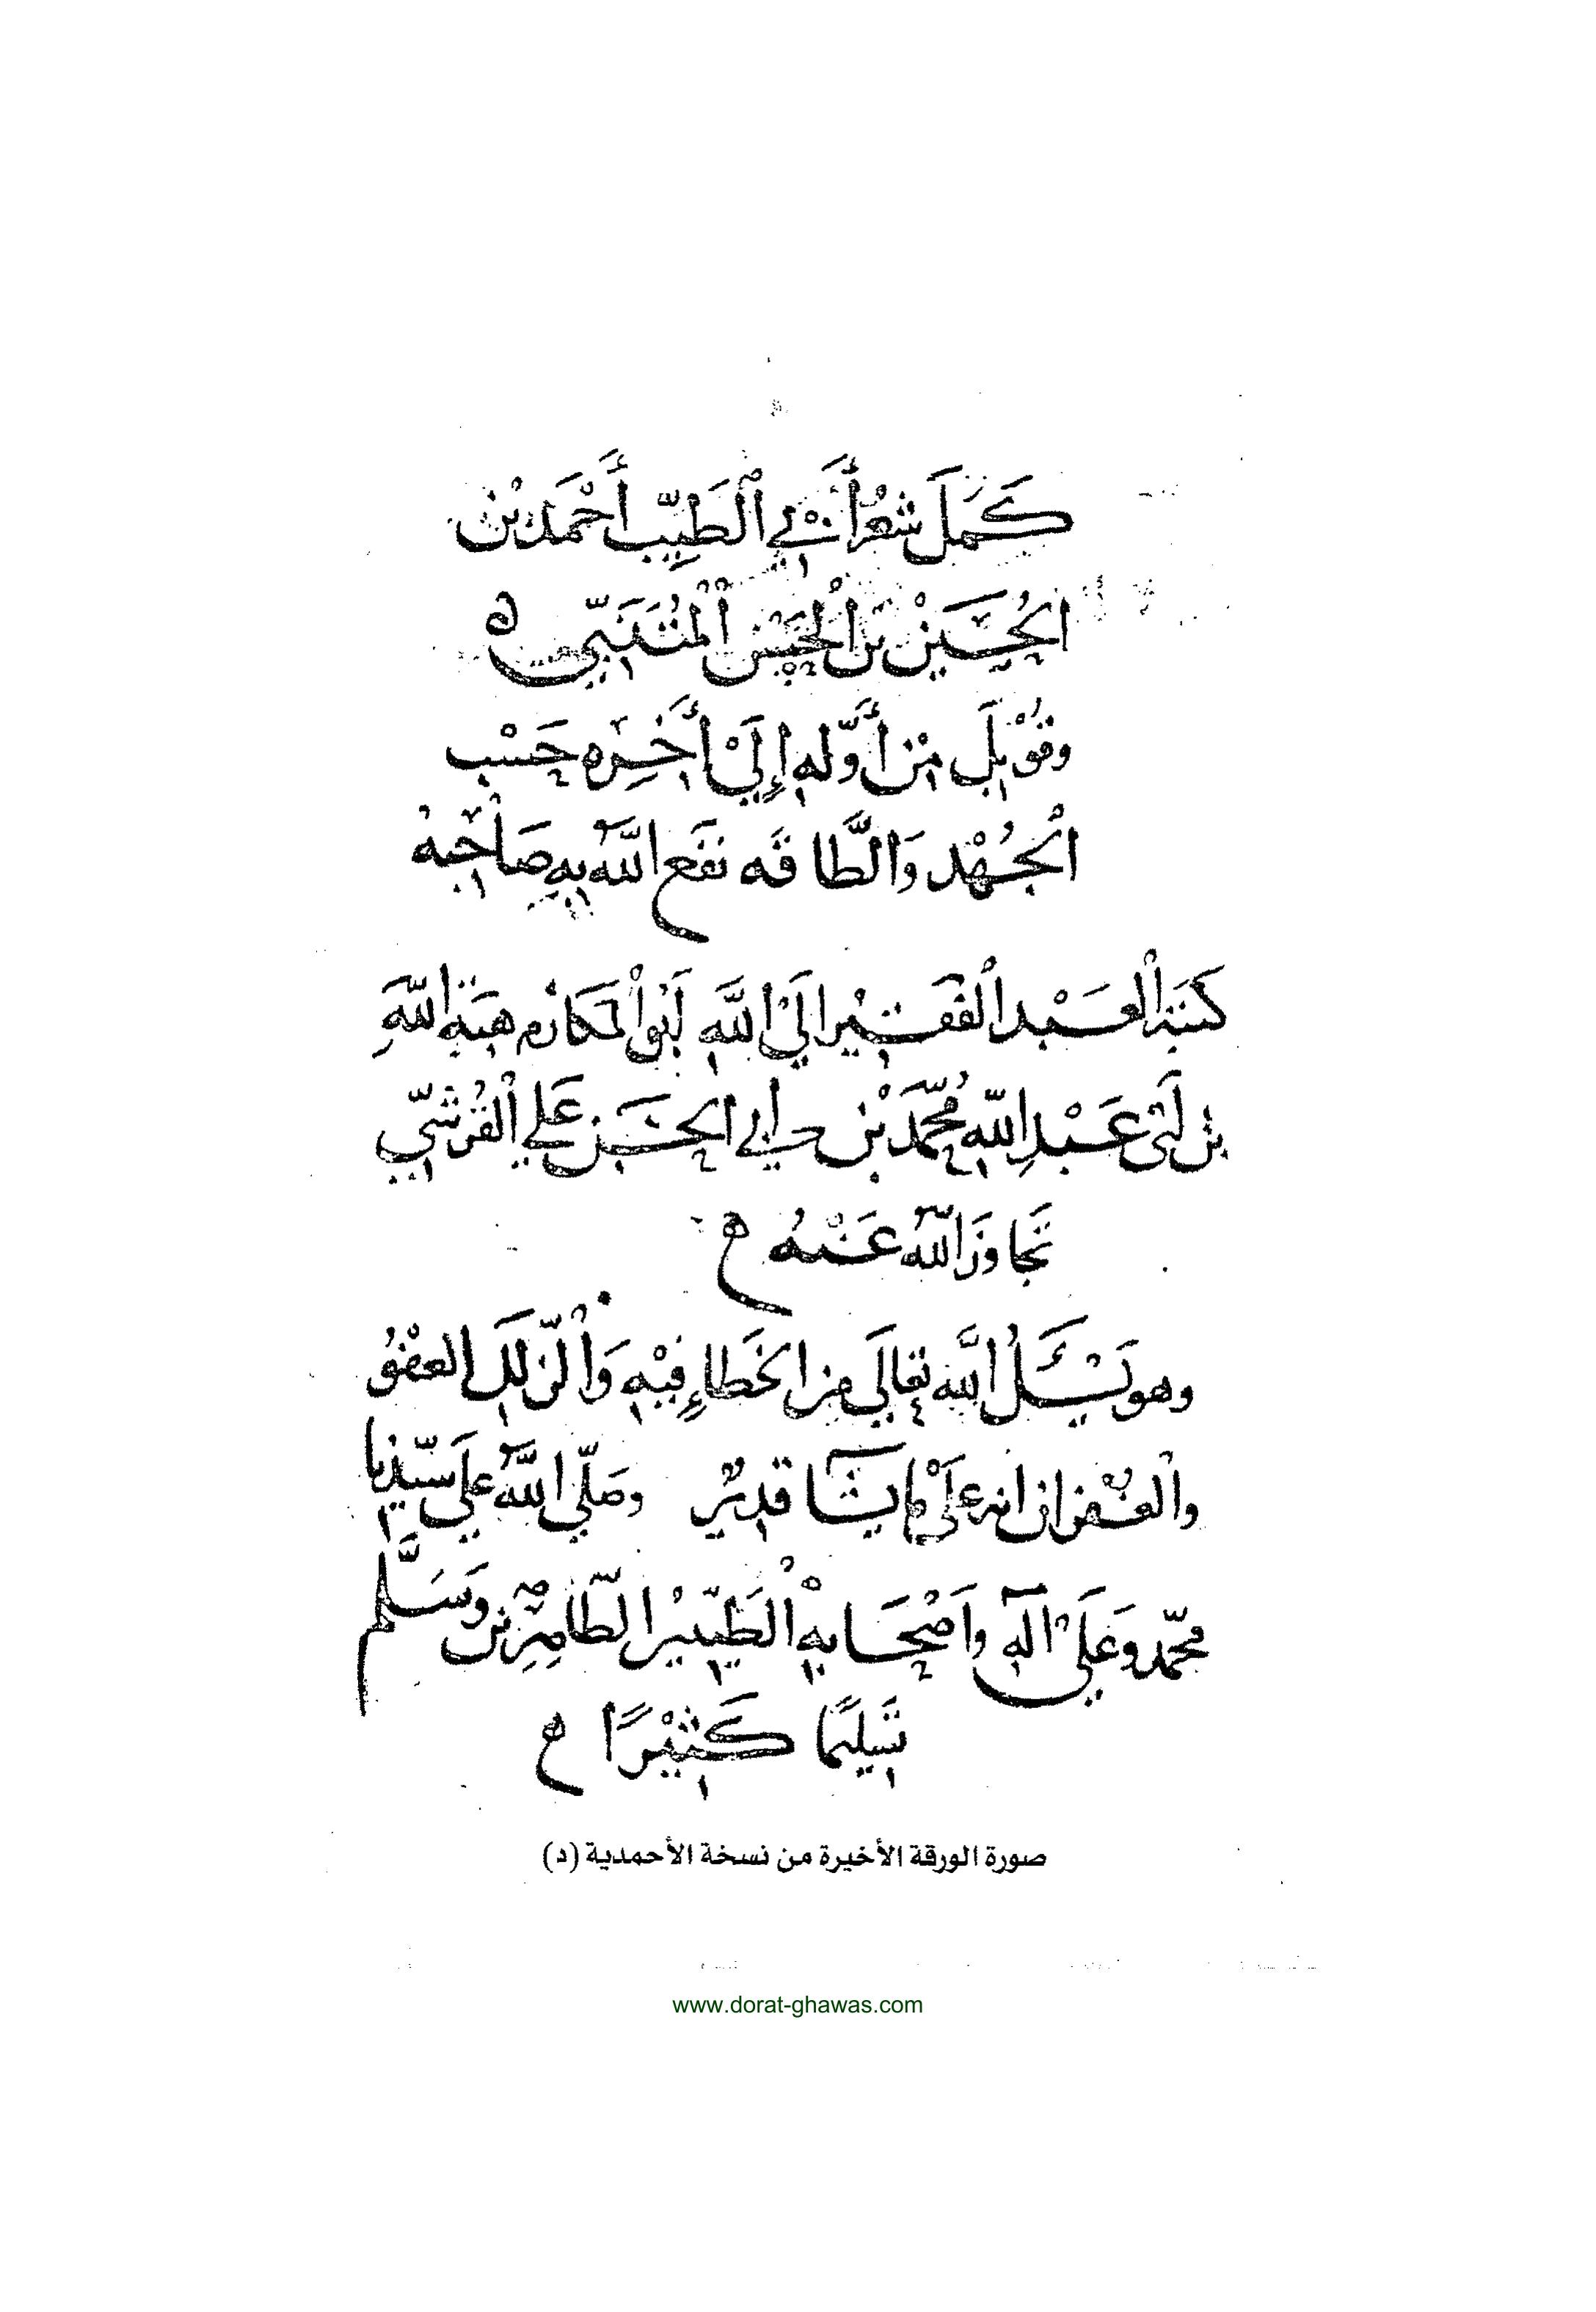 كَمَلَ شعرُ أَبي الطَيِّب أَحْمَد بْن
الحُسَيْن بن الحسن المُتَنَبّي ه
وقُوْبِلَ من أَوّله إِليْ أخِره حَسْب
الجُهْد وَالطَّاقَه نفَع اللهُ بهِ صَاحِبهُ
كتبَهُ العَبْد الفَقير اليَ اللَّه أبو المكارم هبَة اللهِ
بن أبى عَبْدِ اللهِ مُحمّد بْن أبي الحسَن علي القُرشيّ
تَجاوزَ اللهُ عَنْهُ
وهو يَسْئَلُ اللَّه تعالَى من الخَطاءِ فيْهِ وَالزلَل العفْوُ
والغفران انه علىْ مايشآ قديرٌ وصَلّي اللَّهُ علي سَيّدنا
محمّد وعَليْ آلهِ واَصْحَابهِ الطَيّبين الطّاهِرين وَسَلَّم
تسليمًا كَثيْرًا
صورة الورقة الأخيرة من نسخة الأحمدية (د)
www.dorat-ghawas.com